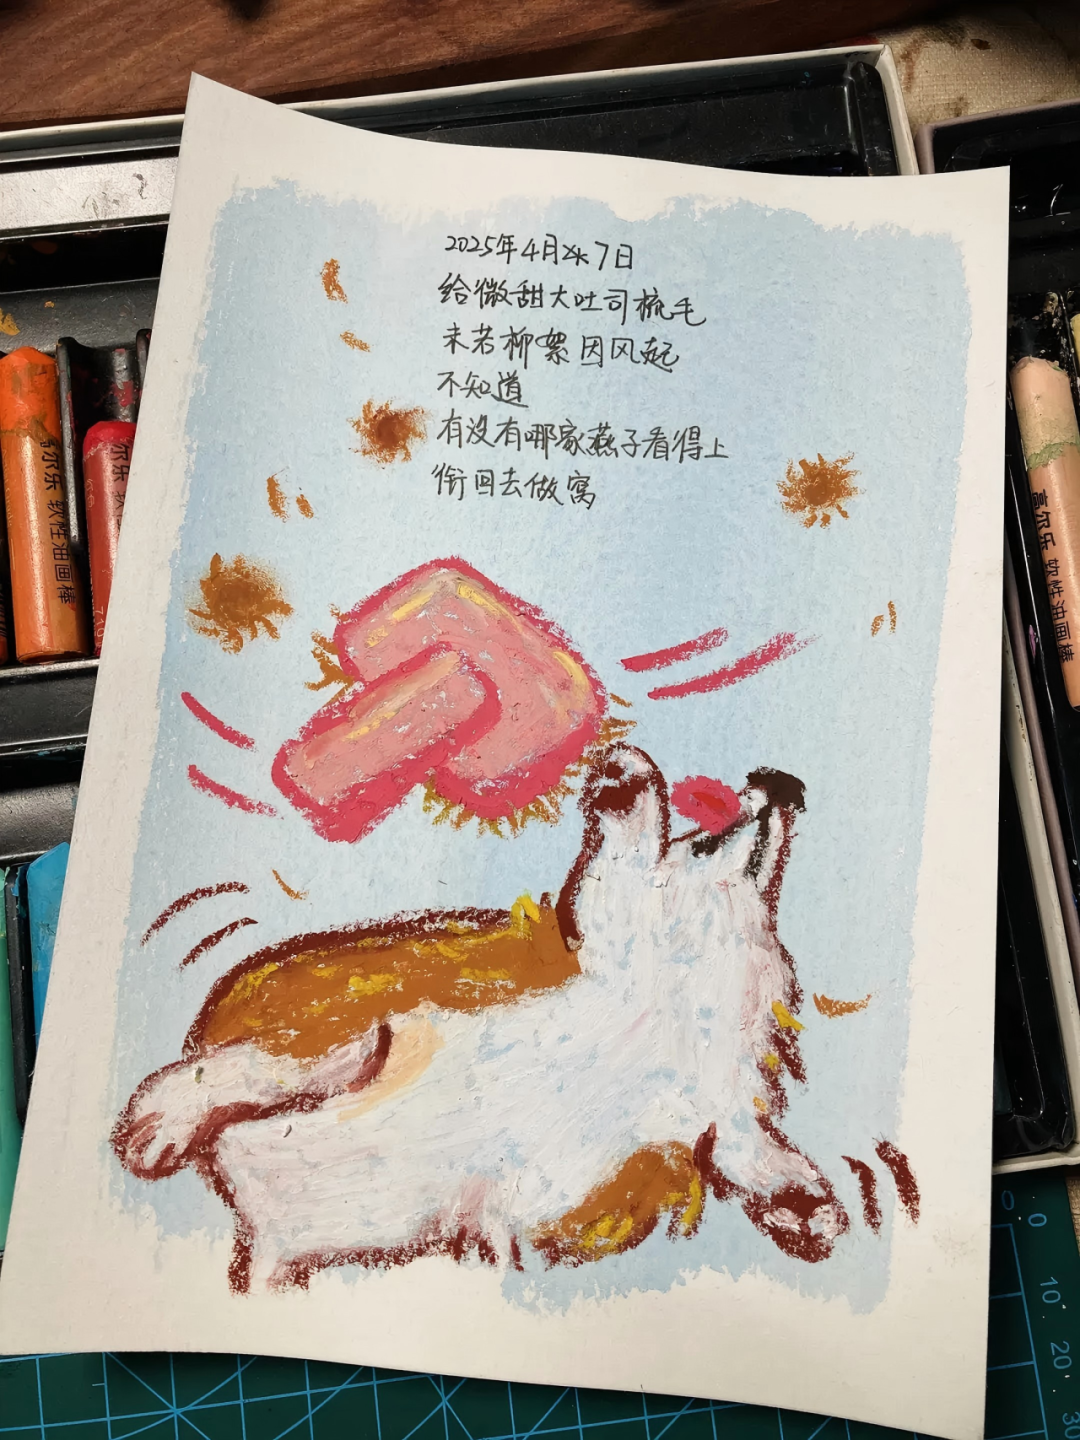 2025年4月7日
给微甜大吐司梳毛
未若柳絮因风起
不知道
有没有哪家燕子看得上
衔回去做窝
高尔乐 软性油画棒
尔乐
高尔乐 软性油画棒
0
0
10
20
30